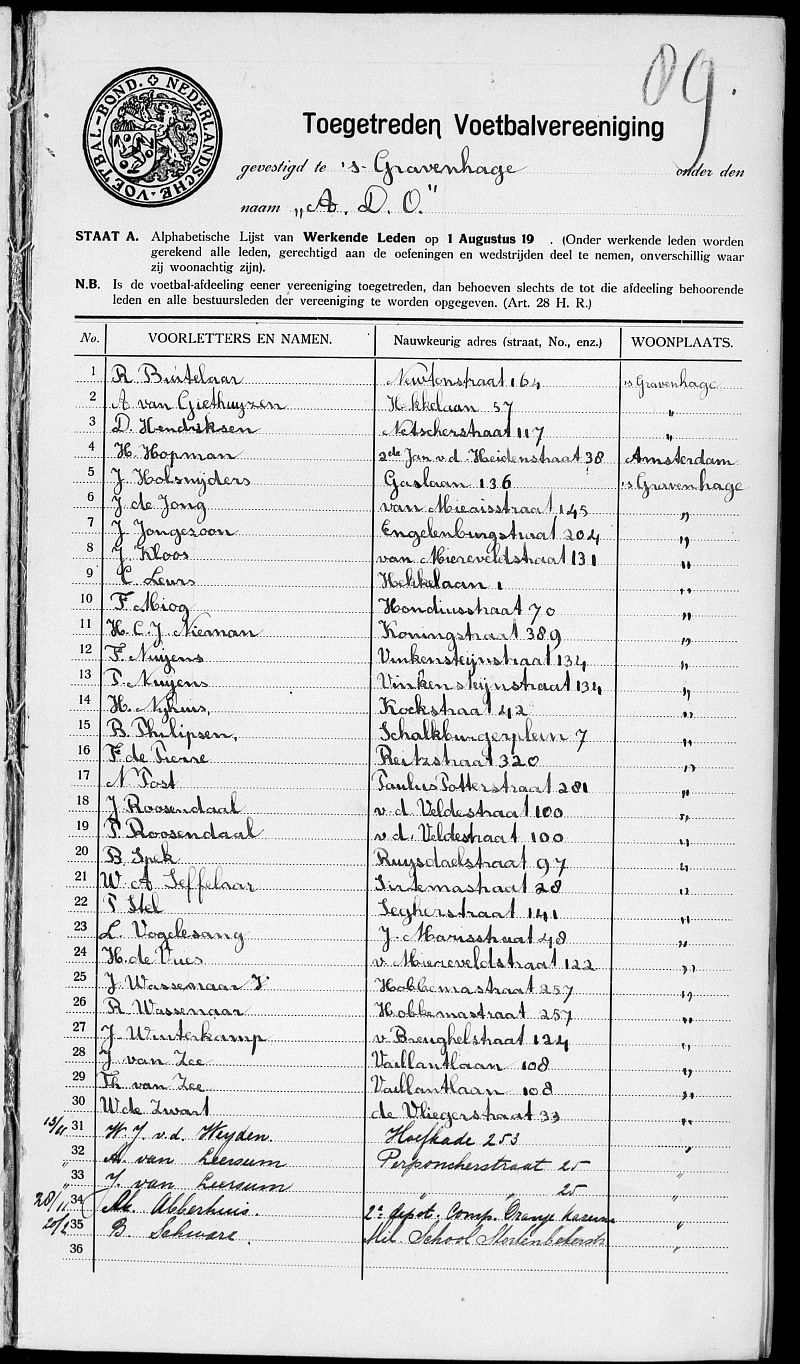 NEDERLANDSCHE VOETBAL-BOND.
09.
Toegetreden Voetbalvereeniging
gevestigd te 's-Gravenhage onder den
naam „A. D. O."
STAAT A. Alphabetische Lijst van Werkende Leden op 1 Augustus 19 . (Onder werkende leden worden
gerekend alle leden, gerechtigd aan de oefeningen en wedstrijden deel te nemen, onverschillig waar
zij woonachtig zijn).
N.B. Is de voetbal-afdeeling eener vereeniging toegetreden, dan behoeven slechts de tot die afdeeling behoorende
leden en alle bestuursleden der vereeniging te worden opgegeven. (Art. 28 H. R.)
No. VOORLETTERS EN NAMEN. Nauwkeurig adres (straat, No., enz.) WOONPLAATS.
1 R. Buitelaar Newtonstraat 164 's Gravenhage
2 A van Giethuyzen Hekkelaan 57 "
3 D. Hendriksen Netscherstraat 117 "
4 H. Hopman 2de Jan v.d. Heidenstraat 38 Amsterdam
5 J. Holsnijders Gaslaan 136 's Gravenhage
6 J. de Jong van Mierisstraat 145 "
7 J. Jongezoon Engelenburgstraat 204 "
8 J. Kloos van Miereveldstraat 131 "
9 C. Leurs Hekkelaan 1 "
10 F. Miog Hondiusstraat 70 "
11 H. C. J. Nieman Koningstraat 389 "
12 F. Nuijens Vinkensteijnstraat 134 "
13 P. Nuijens Vinkensteijnstraat 134 "
14 H. Nijhuis. Kockstraat 42 "
15 B. Philipsen. Schalkburgerplein 7 "
16 F. de Pierre Reitzstraat 320 "
17 N Post Paulus Potterstraat 281 "
18 J. Roosendaal v. d. Veldestraat 100 "
19 P. Roosendaal v. d. Veldestraat 100 "
20 B. Spek Ruysdaelstraat 97 "
21 W. A Seffelaar Sirtemastraat 28 "
22 P. Stel Segherstraat 141 "
23 L. Vogelesang J. Marisstraat 48 "
24 H. de Vries v. Miereveldstraat 122 "
25 J. Wassenaar Hobbemastraat 257 "
26 R. Wassenaar Hobbemastraat 257 "
27 J. Winterkamp v Breughelstraat 124 "
28 J. van Zee Vaillantlaan 108 "
29 Th. van Zee Vaillantlaan 108 "
30 W de Zwart de Vliegerstraat 33 "
13/11 31 W. J. v.d. Weyden. Hoefkade 253
" 32 A. van Leersum Perponcherstraat 25 "
" 33 J. van Leersum " 25 "
28/11 34 Abberhuis. 2e depot. Comp. Oranje Kazerne "
20/2 35 B. Schware. Mil School "
36